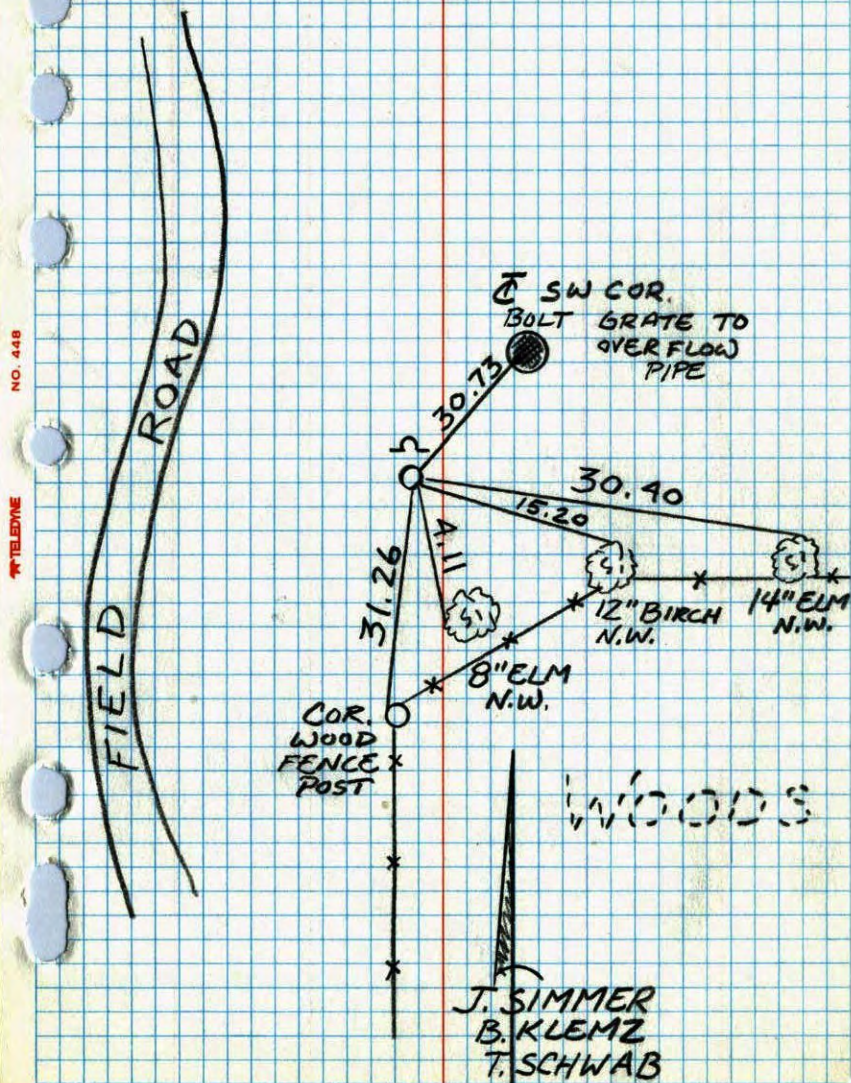 NO. 448
TELEDYNE
FIELD ROAD
℄ SW COR.
BOLT GRATE TO
OVERFLOW
PIPE
30.73
30.40
15.20
31.26
8" ELM
N.W.
12" BIRCH
N.W.
14" ELM
N.W.
COR.
WOOD
FENCE
POST
WOODS
J. SIMMER
B. KLEMZ
T. SCHWAB